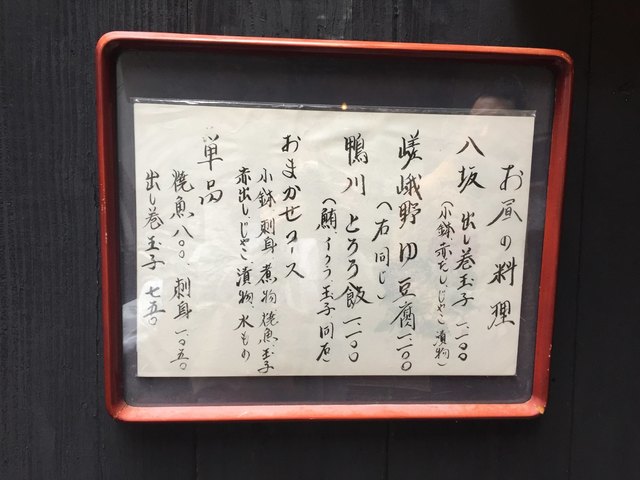 お昼の料理
八坂 出し巻玉子 一、二〇〇
(小鉢、赤だし、じゃこ、漬物)
嵯峨野 ゆ豆腐 一、二〇〇
(右同じ)
鴨川 とろろ飯 一、二〇〇
(鮪、いくら、玉子、同右)
おまかせコース
小鉢、刺身、煮物、焼魚、玉子
赤出し、じゃこ、漬物、水もの
単品
焼魚 八〇〇、刺身 一、〇五〇
出し巻玉子 七五〇